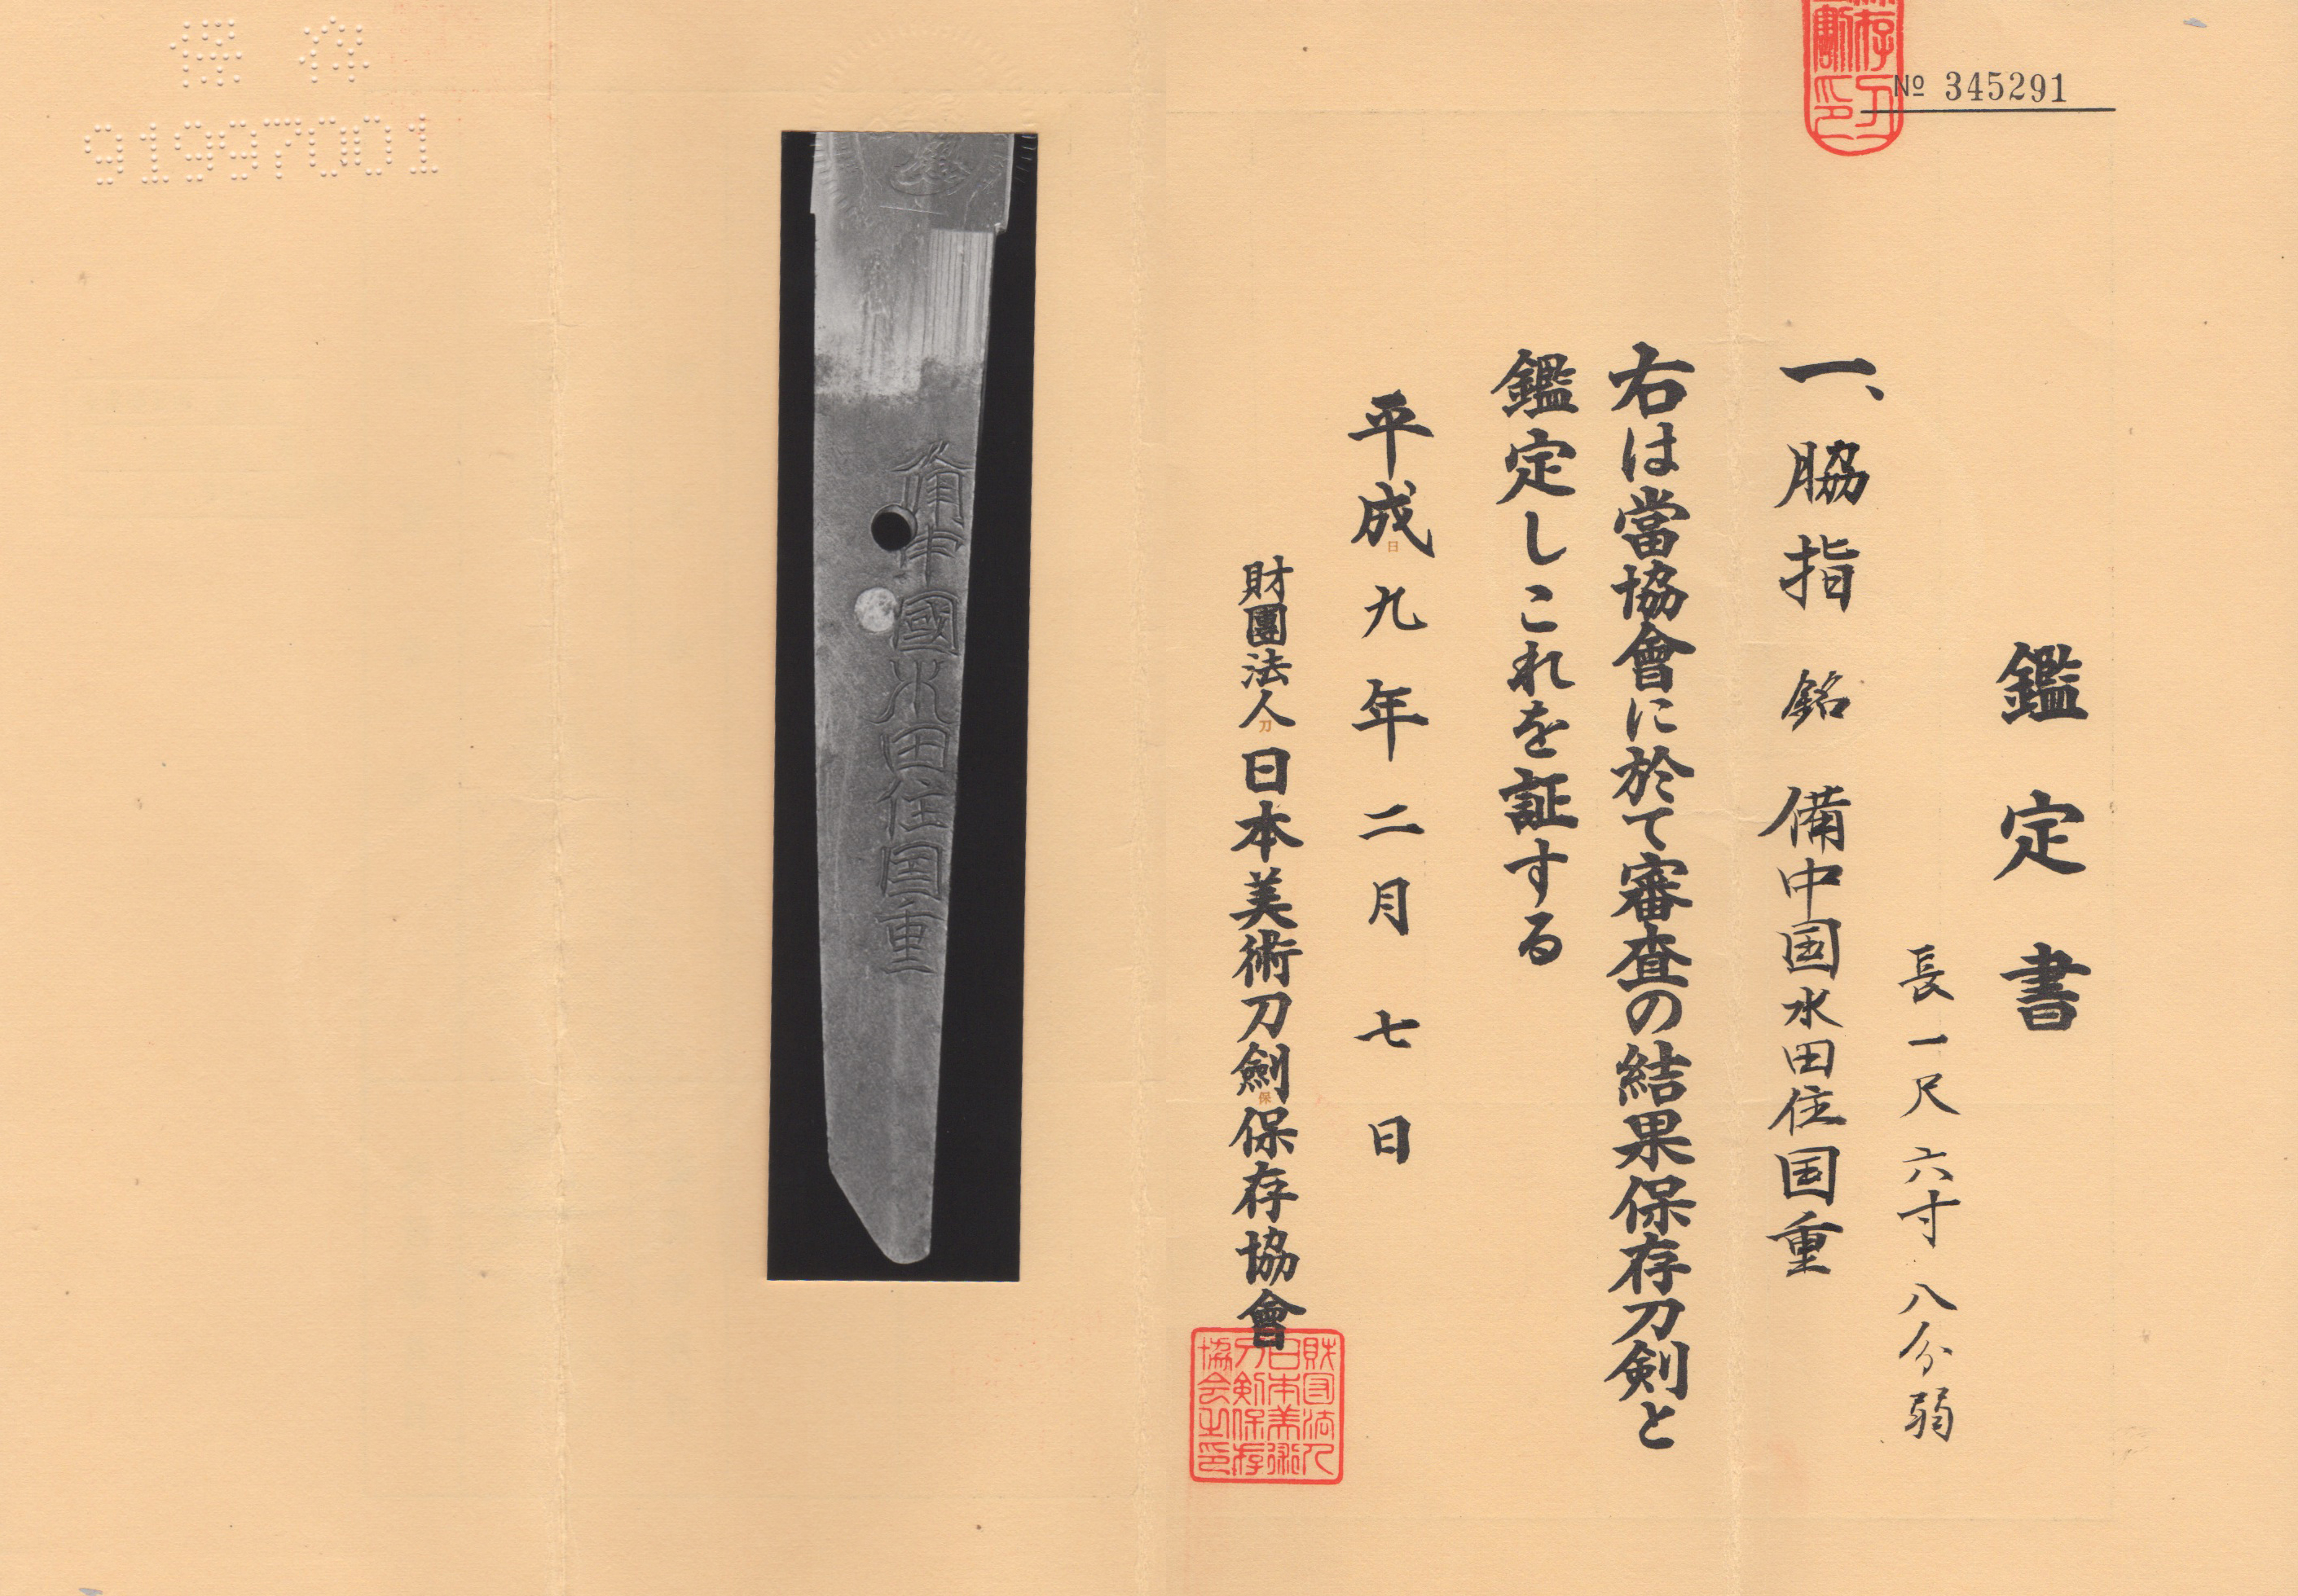 № 345291
鑑定書
長一尺六寸八分弱
一、脇指 銘 備中国水田住国重
右は當協會に於て審査の結果保存刀剣と
鑑定しこれを証する
平成九年二月七日
財團法人日本美術刀劍保存協會
財団法人
日本美術
刀剣保存
協会之印
備中國水田住国重
保存
91997001